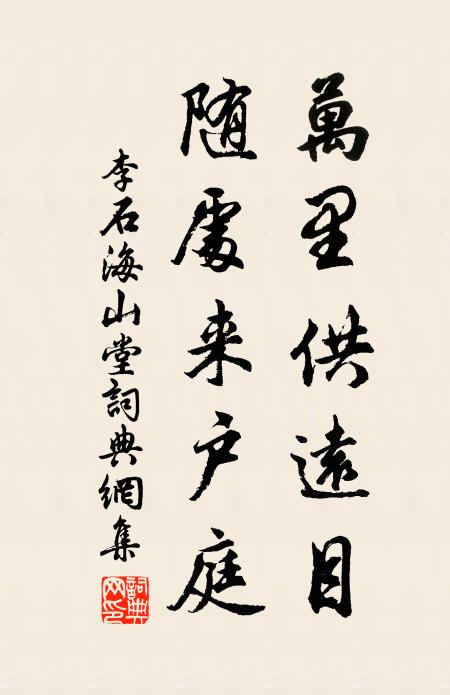 萬里供遠目
随處来户庭
李石海山堂詞典網集
詞典网印